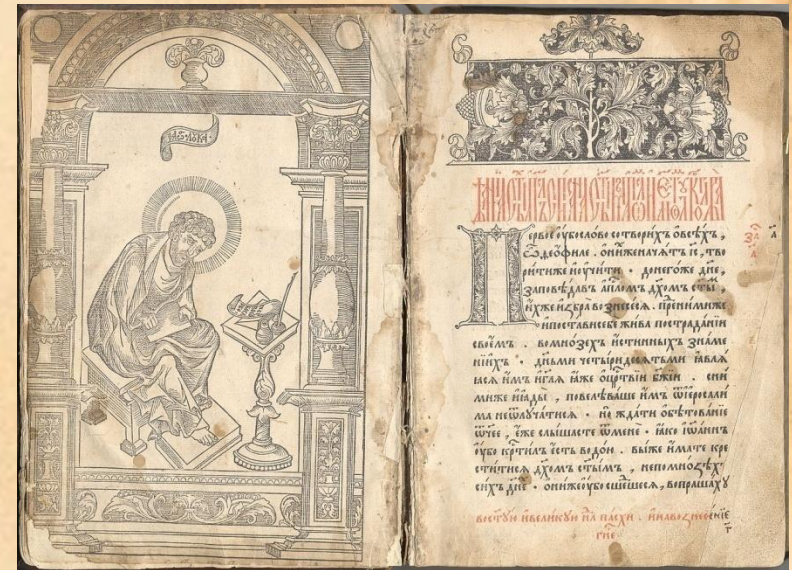 Первое ᲂубо слово сотворихъ ѡвсѣхъ ,
ѽ ѳеофиле . ѡнихже начатъ і҃с , тво
ритиже иᲂучити . донегоже дн҃е ,
заповѣдавъ ап҃лѡмъ дх҃омъ ст҃ы ,
ихже избра вознесесѧ . пре нимиже
ипостави себе жива пострадани҄и
своемъ . вомнозехъ истинныхъ знаме
нїихъ . дн҃ьми четыридесѧтьми ꙗвлѧ
ꙗсѧ имъ иг҃лѧ ꙗже ѡцр҃твїи бж҃їи . сни
миже иꙗды , повелѣваше имъ ѿіерⷭ҇али
ма неѿлꙋчатисѧ . но ждати ѡбѣтованїе
ѿчее , еже слышасте ѿмене . ꙗко іѡаннъ
ᲂубо кр҃тилъ есть водою . выже имате кре
ститисѧ дх҃омъ ст҃ымъ , непомнозѣхъ
сихъ дн҃е . ѡниже ᲂубо сшешесѧ , вопрашахꙋ
вост҃ꙋю ивеликꙋю нл҃ѧ пасхи . инавознесенїе
гн҃е